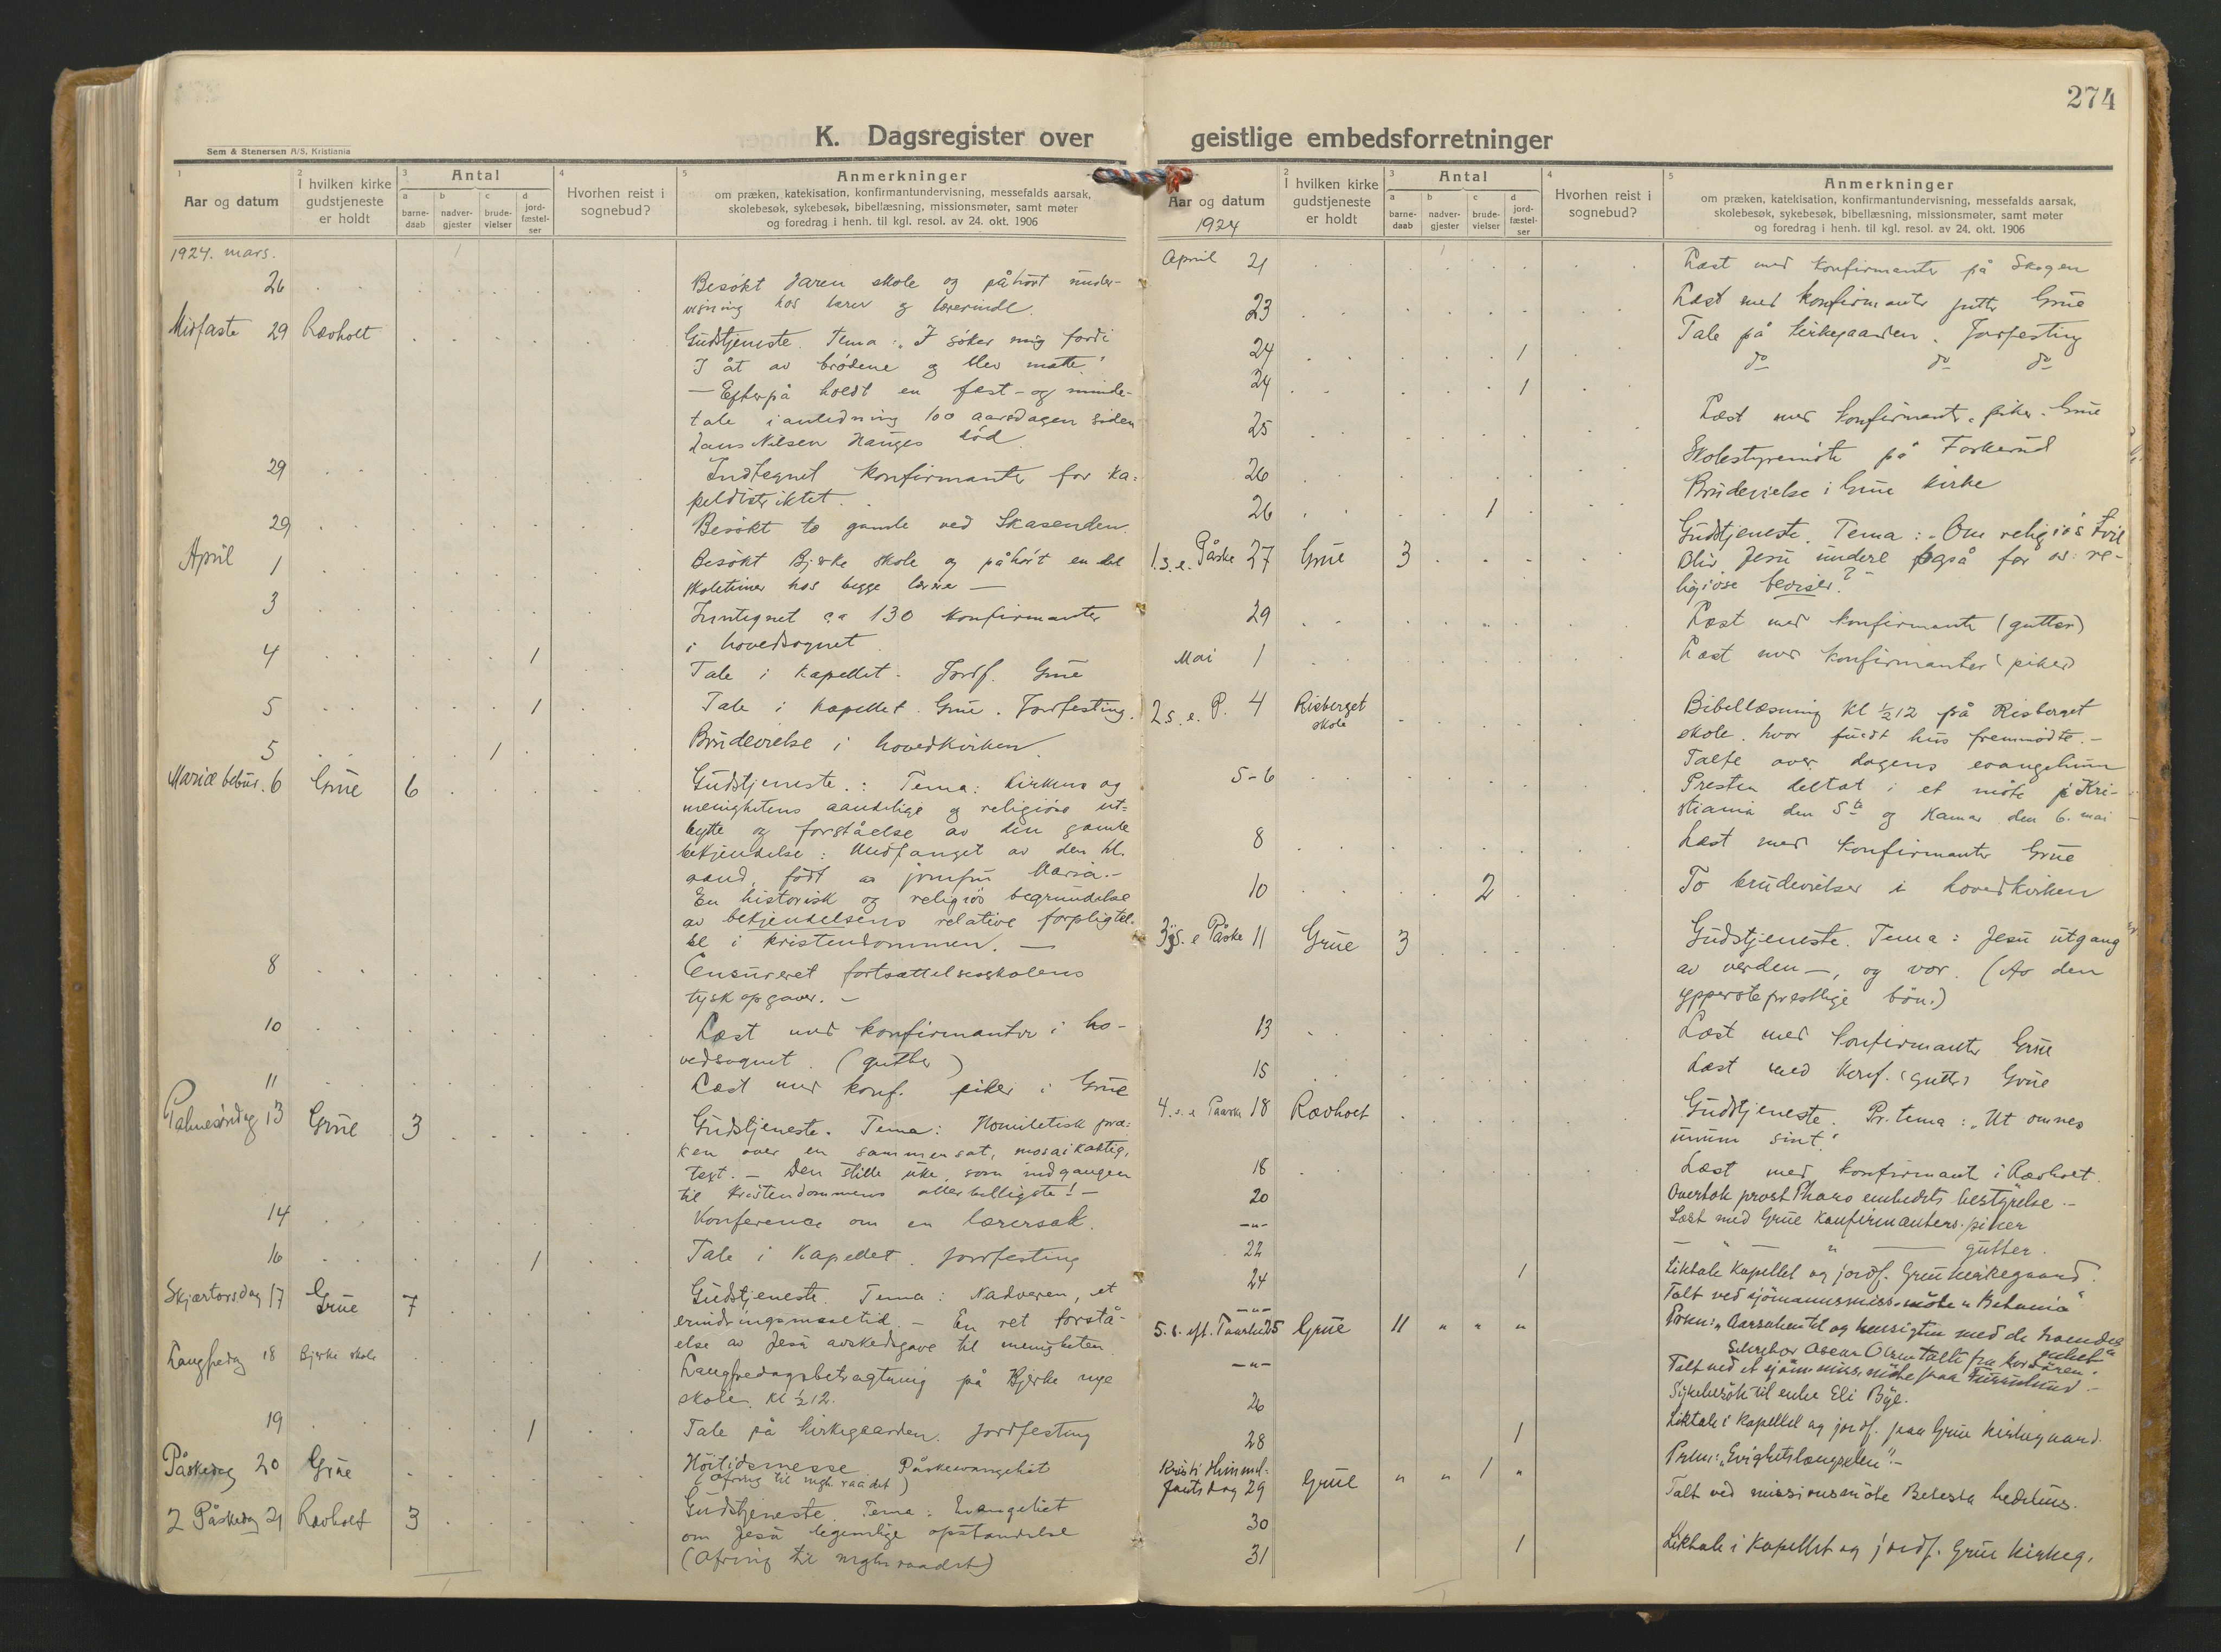 274
K. Dagsregister over geistlige embedsforretninger
Sem & Stenersen A/S, Kristiania
1
Aar og datum
2
I hvilken kirke
gudstjeneste
er holdt
3
Antal
a
barne-
daab
b
nadver-
gjester
c
brude-
vielser
d
jord-
fæstel-
ser
4
Hvorhen reist i
sognebud?
5
Anmerkninger
om præken, katekisation, konfirmantundervisning, messefalds aarsak,
skolebesøk, sykebesøk, bibellæsning, missionsmøter, samt møter
og foredrag i henh. til kgl. resol. av 24. okt. 1906
1924. mars.
26 Besøkt Jaren skole og påhørt under-
visning hos lærer og lærerinde.
Midfaste 29 Rævholt Gudstjeneste. Tema: "I søker mig fordi
I åt av brødene og blev mætte"
— Efterpå holdt en fest- og minde-
tale i anledning 100 aarsdagen siden
Hans Nilsen Hauges død.
29 Indtegnet konfirmanter for ka-
peldistriktet.
29 Besøkt to gamle ved Skasenden.
April 1 Besøkt Bjerke skole og påhørt en del
skoletimer hos begge lærere —
3 Inntegnet ca 130 konfirmanter
i hovedsognet
4 1 Tale i kapellet. Jordf. Grue
5 1 Tale i kapellet. Grue. Jordfesting.
5 1 Brudevielse i hovedkirken.
Mariæ bebud. 6 Grue 6 Gudstjeneste.: Tema: Kirkens og
menighetens aandelige og religiøse ut-
bytte og forståelse av den gamle
bekjendelse: Undfanget av den hl.
aand, født av jomfru Maria.—
En historisk og religiøs begrundelse
av bekjendelsens relative forpligtel-
se i kristendommen. —
8 Censureret fortsættelsesskolens
tyskopgaver. —
10 Læst med konfirmanter i ho-
vedsognet. (gutter)
11 Læst med konf. piker i Grue
Palmesøndag 13 Grue 3 Gudstjeneste. Tema: Homiletisk præ-
ken over en sammensat, mosaikaktig,
text. — Den stille uke som indgangen
til kristendommens allerhelligste! —
14 Konference om en lærersak.
16 1 Tale i Kapellet. Jordfesting
Skjærtorsdag 17 Grue 7 Gudstjeneste. Tema: Nadveren, et
erindringsmaaltid. — En ret forstå-
else av Jesu avskedsgave til menigheten
Langfredag 18 Bjerke skole Langfredagsbetragtning på Bjerke nye
skole. Kl ½12.
19 1 Tale på kirkegaarden. Jordfesting
Påskedag 20 Grue Høitidsmesse Påskeevangeliet
(Ofring til mgh. raadet)
2 Påskedag 21 Rævholt 3 Gudstjeneste. Tema: Evangeliet
om Jesu legemlige opstandelse
(Ofring til meghraadet)
1
Aar og datum
1924
2
I hvilken kirke
gudstjeneste
er holdt
3
Antal
a
barne-
daab
b
nadver-
gjester
c
brude-
vielser
d
jord-
fæstel-
ser
4
Hvorhen reist i
sognebud?
5
Anmerkninger
om præken, katekisation, konfirmantundervisning, messefalds aarsak,
skolebesøk, sykebesøk, bibellæsning, missionsmøter, samt møter
og foredrag i henh. til kgl. resol. av 24. okt. 1906
April 21 Læst med konfirmanter på Skogen
23 Læst med konfirmanter gutter Grue
24 1 Tale på kirkegaarden. Jordfesting
24 1 do do do
25 Læst med konfirmanter. piker. Grue
26 Skolestyremøte på
26 1 Brudevielse i Grue kirke
1 s. e. Påske 27 Grue 3 Gudstjeneste. Tema: Om religiøs tvil
Bliv Jesu undere også for os re-
ligiøse beviser?
29 Læst med konfirmanter (gutter)
Mai 1 Læst med konfirmanter (piker)
2 s. e. P. 4 Risberget
skole Bibellæsning Kl ½12 på Risberget
skole. hvor fuldt hus fremmødte. —
Talte over dagens evangelium
5-6 Presten deltat i et møte i Kri-
stiania den 5te og Hamar den 6. mai
8 Læst med konfirmanter Grue
10 2 To brudevielser i hovedkirken
3 s. e Påske 11 Grue 3 Gudstjeneste. Tema: Jesu utgang
av verden —, og vor. (Av den
ypperstepræstlige bøn.)
13 Læst med konfirmanter Grue
15 Læst med konf. (gutter) Grue
4. s. e Paaske 18 Rævholt Gudstjeneste. Pr. tema: "Ut omnes
unum sint".
18 Læst med konfirmant i Rævholt.
20 Overtok prost Pharo embedets bestyrelse. —
—"— Læst med Grue konfirmanter. piker
22 — " — " — gutter.
24 1 Liktale Kapellet og jordf. Grue kirkegaard.
—"— Talt ved sjømannsmiss. møte "Betania"
5. s. eft. Paaske 25 Grue 11 " " " Præken: "Aarsaken til og hensigten med de
Oscar Olsen talte fra kordøren.
—"— Talt ved et sjømmiss. møte paa
26 Sykebesøk til enke Eli
28 1 Liktale i Kapellet og jordf. paa Grue kirkegaard.
Kristi Himmel-
fartsdag 29 Grue " " 1 " Præken: "Evighetslængselen". —
30 Talt ved missionsmøte Betesta bedehus.
31 1 Liktale i Kapellet og jordf. Grue kirkeg.